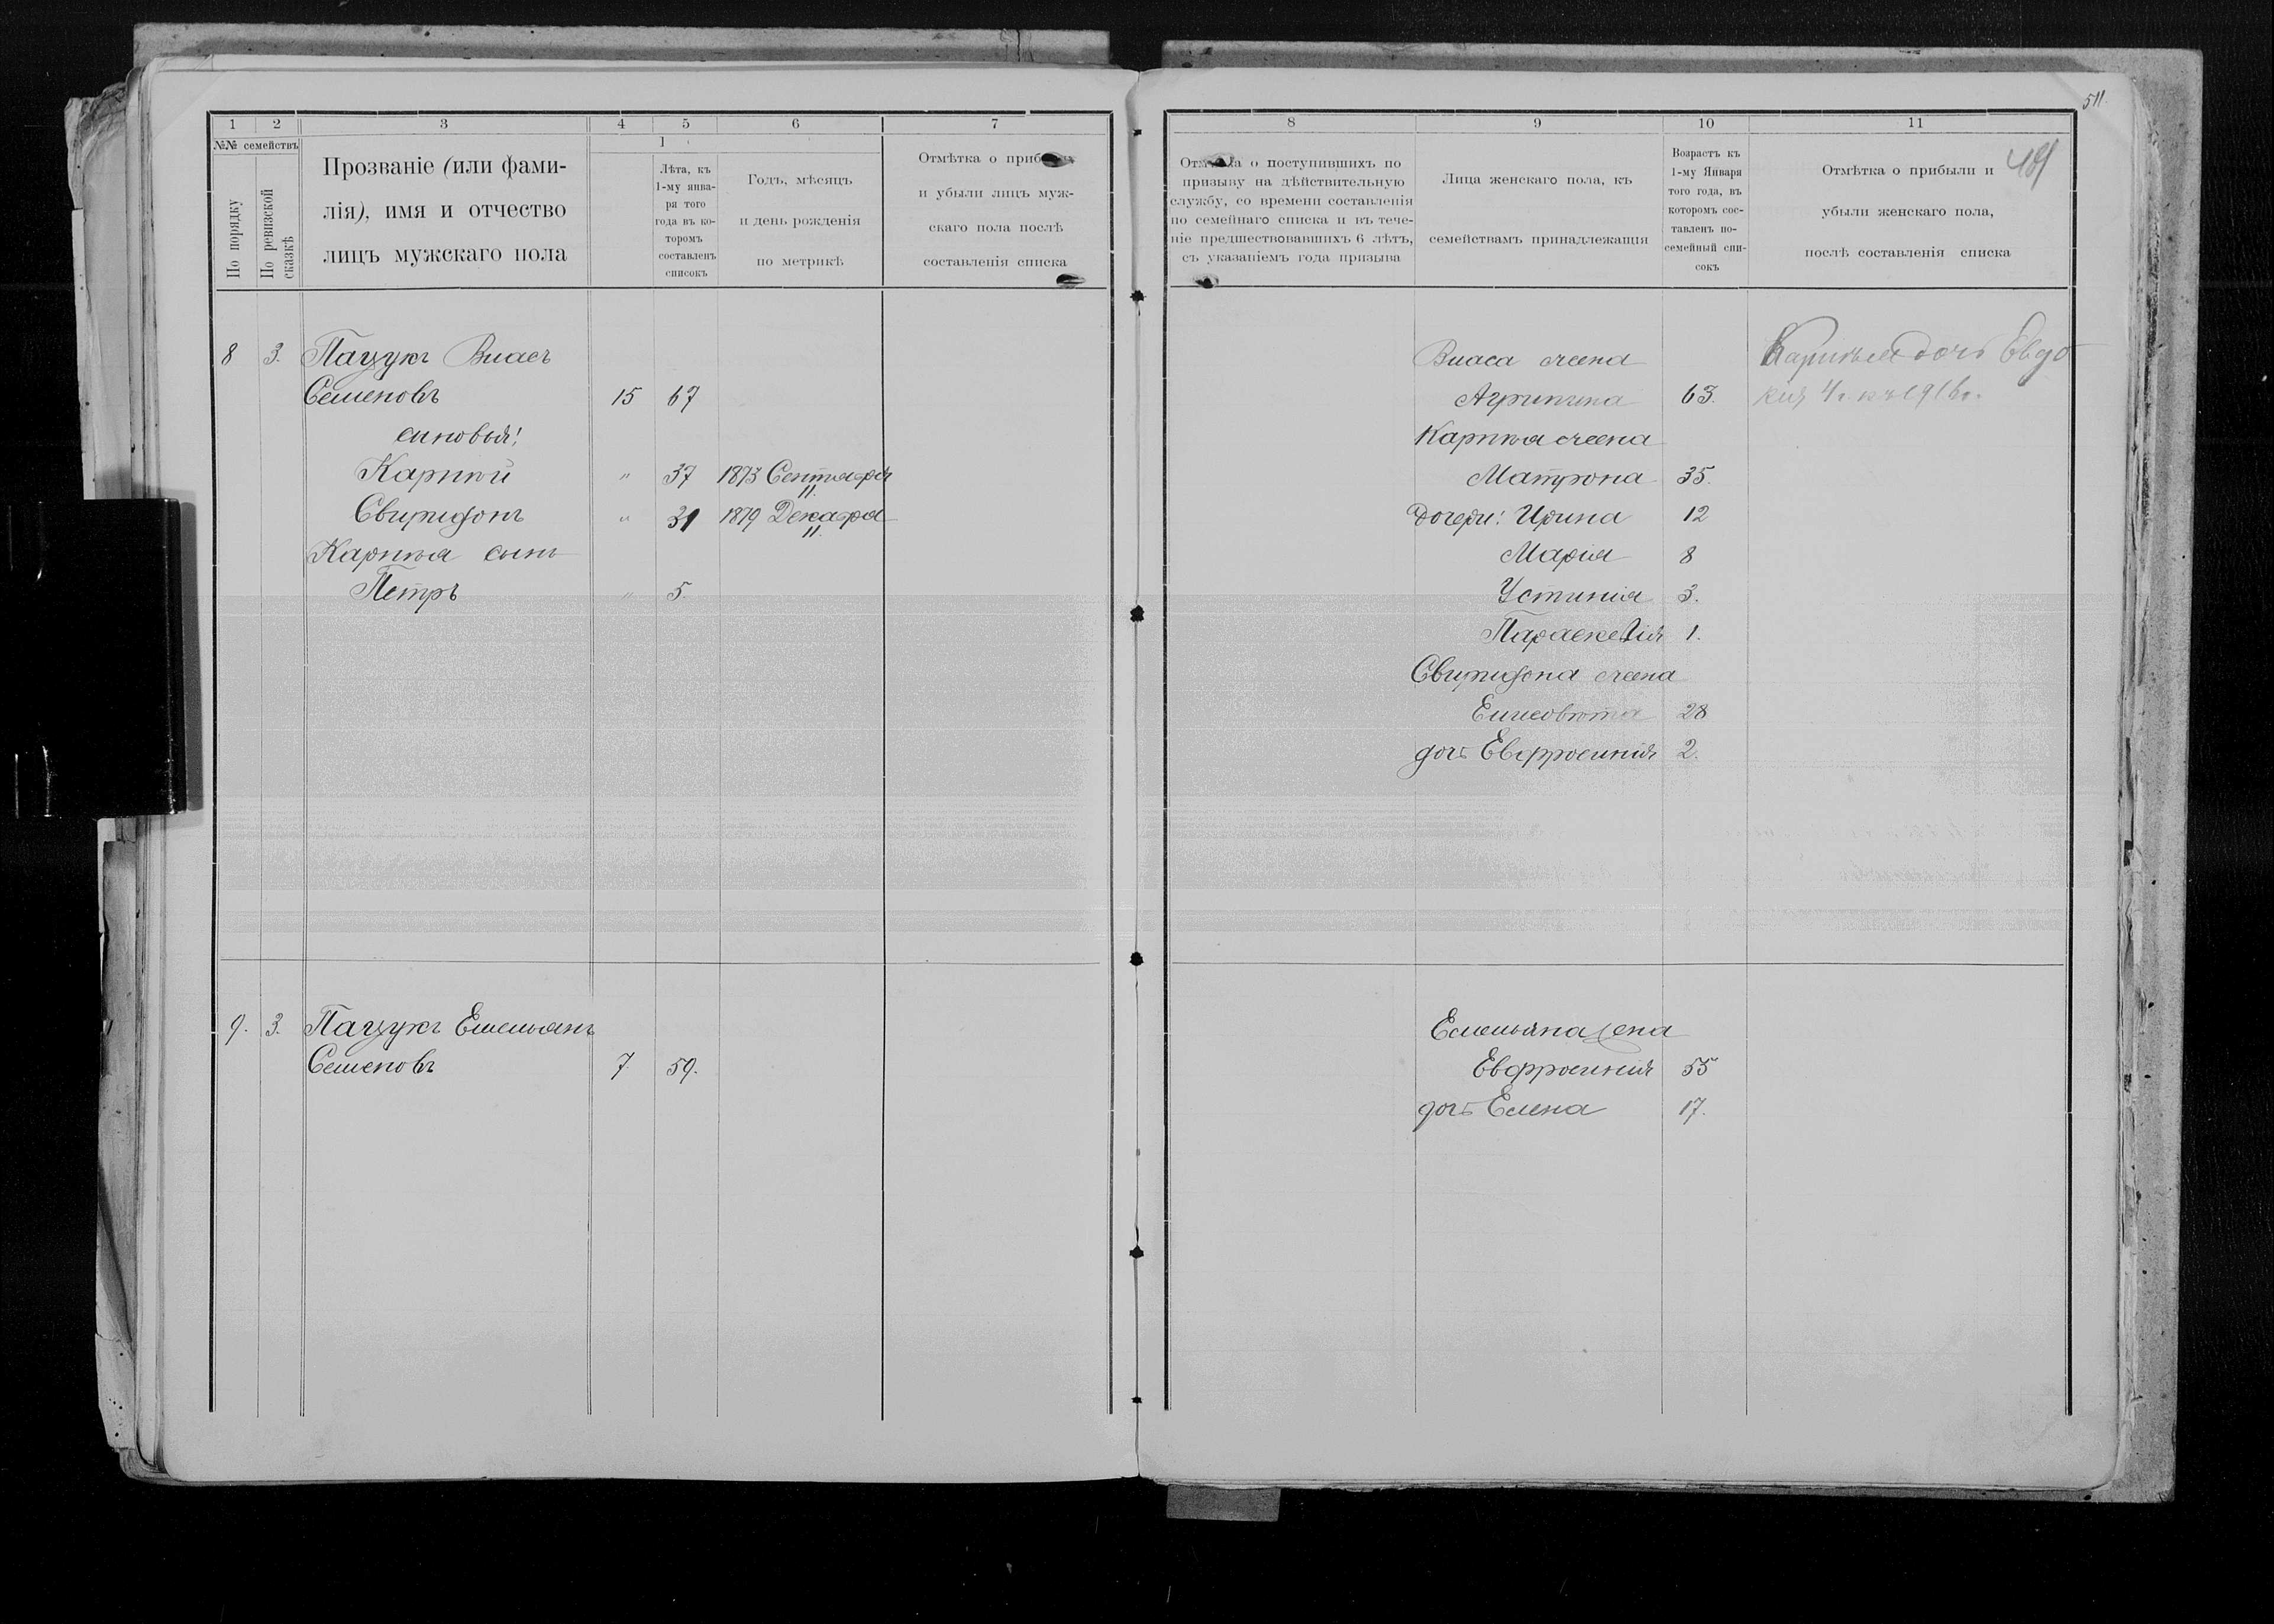 511.
481
1 2 3 4 5 6 7
№№ семействъ
По порядку
По ревизской сказкѣ
Прозваніе (или фами-
лія), имя и отчество
лицъ мужскаго пола
1
Лѣта, къ
1-му янва-
ря того
года въ ко-
торомъ
составленъ
списокъ
Годъ, мѣсяцъ
и день рожденія
по метрикѣ
Отмѣтка о прибыли
и убыли лицъ муж-
скаго пола послѣ
составленія списка
8 3. Пацукъ Власъ
Семеновъ 15 67
сыновья:
Карпъ " 37 1873 Сентября
11.
Свиридонъ " 31 1879 Декабря
11.
Карпа сынъ
Петръ " 5.
9. 3. Пацукъ Емельянъ
Семеновъ 7 59.
8 9 10 11
Отмѣтка о поступившихъ по
призыву на дѣйствительную
службу, со времени составленія
по семейнаго списка и въ тече-
ніе предшествовавшихъ 6 лѣтъ,
съ указаніемъ года призыва
Лица женскаго пола, къ
семействамъ принадлежащія
Возрастъ къ
1-му Января
того года, въ
которомъ сос-
тавленъ по-
семейный спи-
сокъ
Отмѣтка о прибыли и
убыли женскаго пола,
послѣ составленія списка
Власа жена
Агрипина 63.
Карпа жена
Матрона 35.
дочери: Ирина 12
Марія 8
Устинія 3.
Параскевія 1.
Свиридона жена
Елисавета 28
дочь Евфросинія 2.
дочь Евдо
кія 4 г. къ 1916 г.
Емельяна жена
Евфросинія 55
дочь Елена 17.